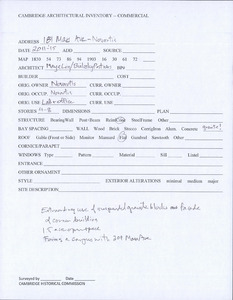 CAMBRIDGE ARCHITECTURAL INVENTORY – COMMERCIAL
ADDRESS 181 Mass Ave – Novartis
DATE 2011-15 ADD SOURCE
MAP 1830 54 73 86 94 1903 16 30 65 72
ARCHITECT Maya Lin/ BPN
BUILDER COST
ORIG. OWNER Novartis CURR. OWNER
ORIG. OCCUP. Novartis CURR. OCCUP.
ORIG. USE Lab-office CURR. USE
STORIES DIMENSIONS PLAN
STRUCTURE Bearing Wall Post+Beam Steel Frame Other
BAY SPACING WALL Wood Brick Stucco Corrugtion Alum. Concrete granite!
ROOF Gable (Front or Side) Monitor Mansard Flat Gambrel Sawtooth Other
CORNICE/PARAPET
WINDOWS Type Pattern Material Sill Lintel
ENTRANCE
OTHER ORNAMENT
STYLE EXTERIOR ALTERATIONS minimal medium major
SITE DESCRIPTION
Extraordinary use of granite blocks as facade
of corner building
1.5 acre open space
Forms a campus with Mass Ave
Surveyed by Date
CAMBRIDGE HISTORICAL COMMISSION